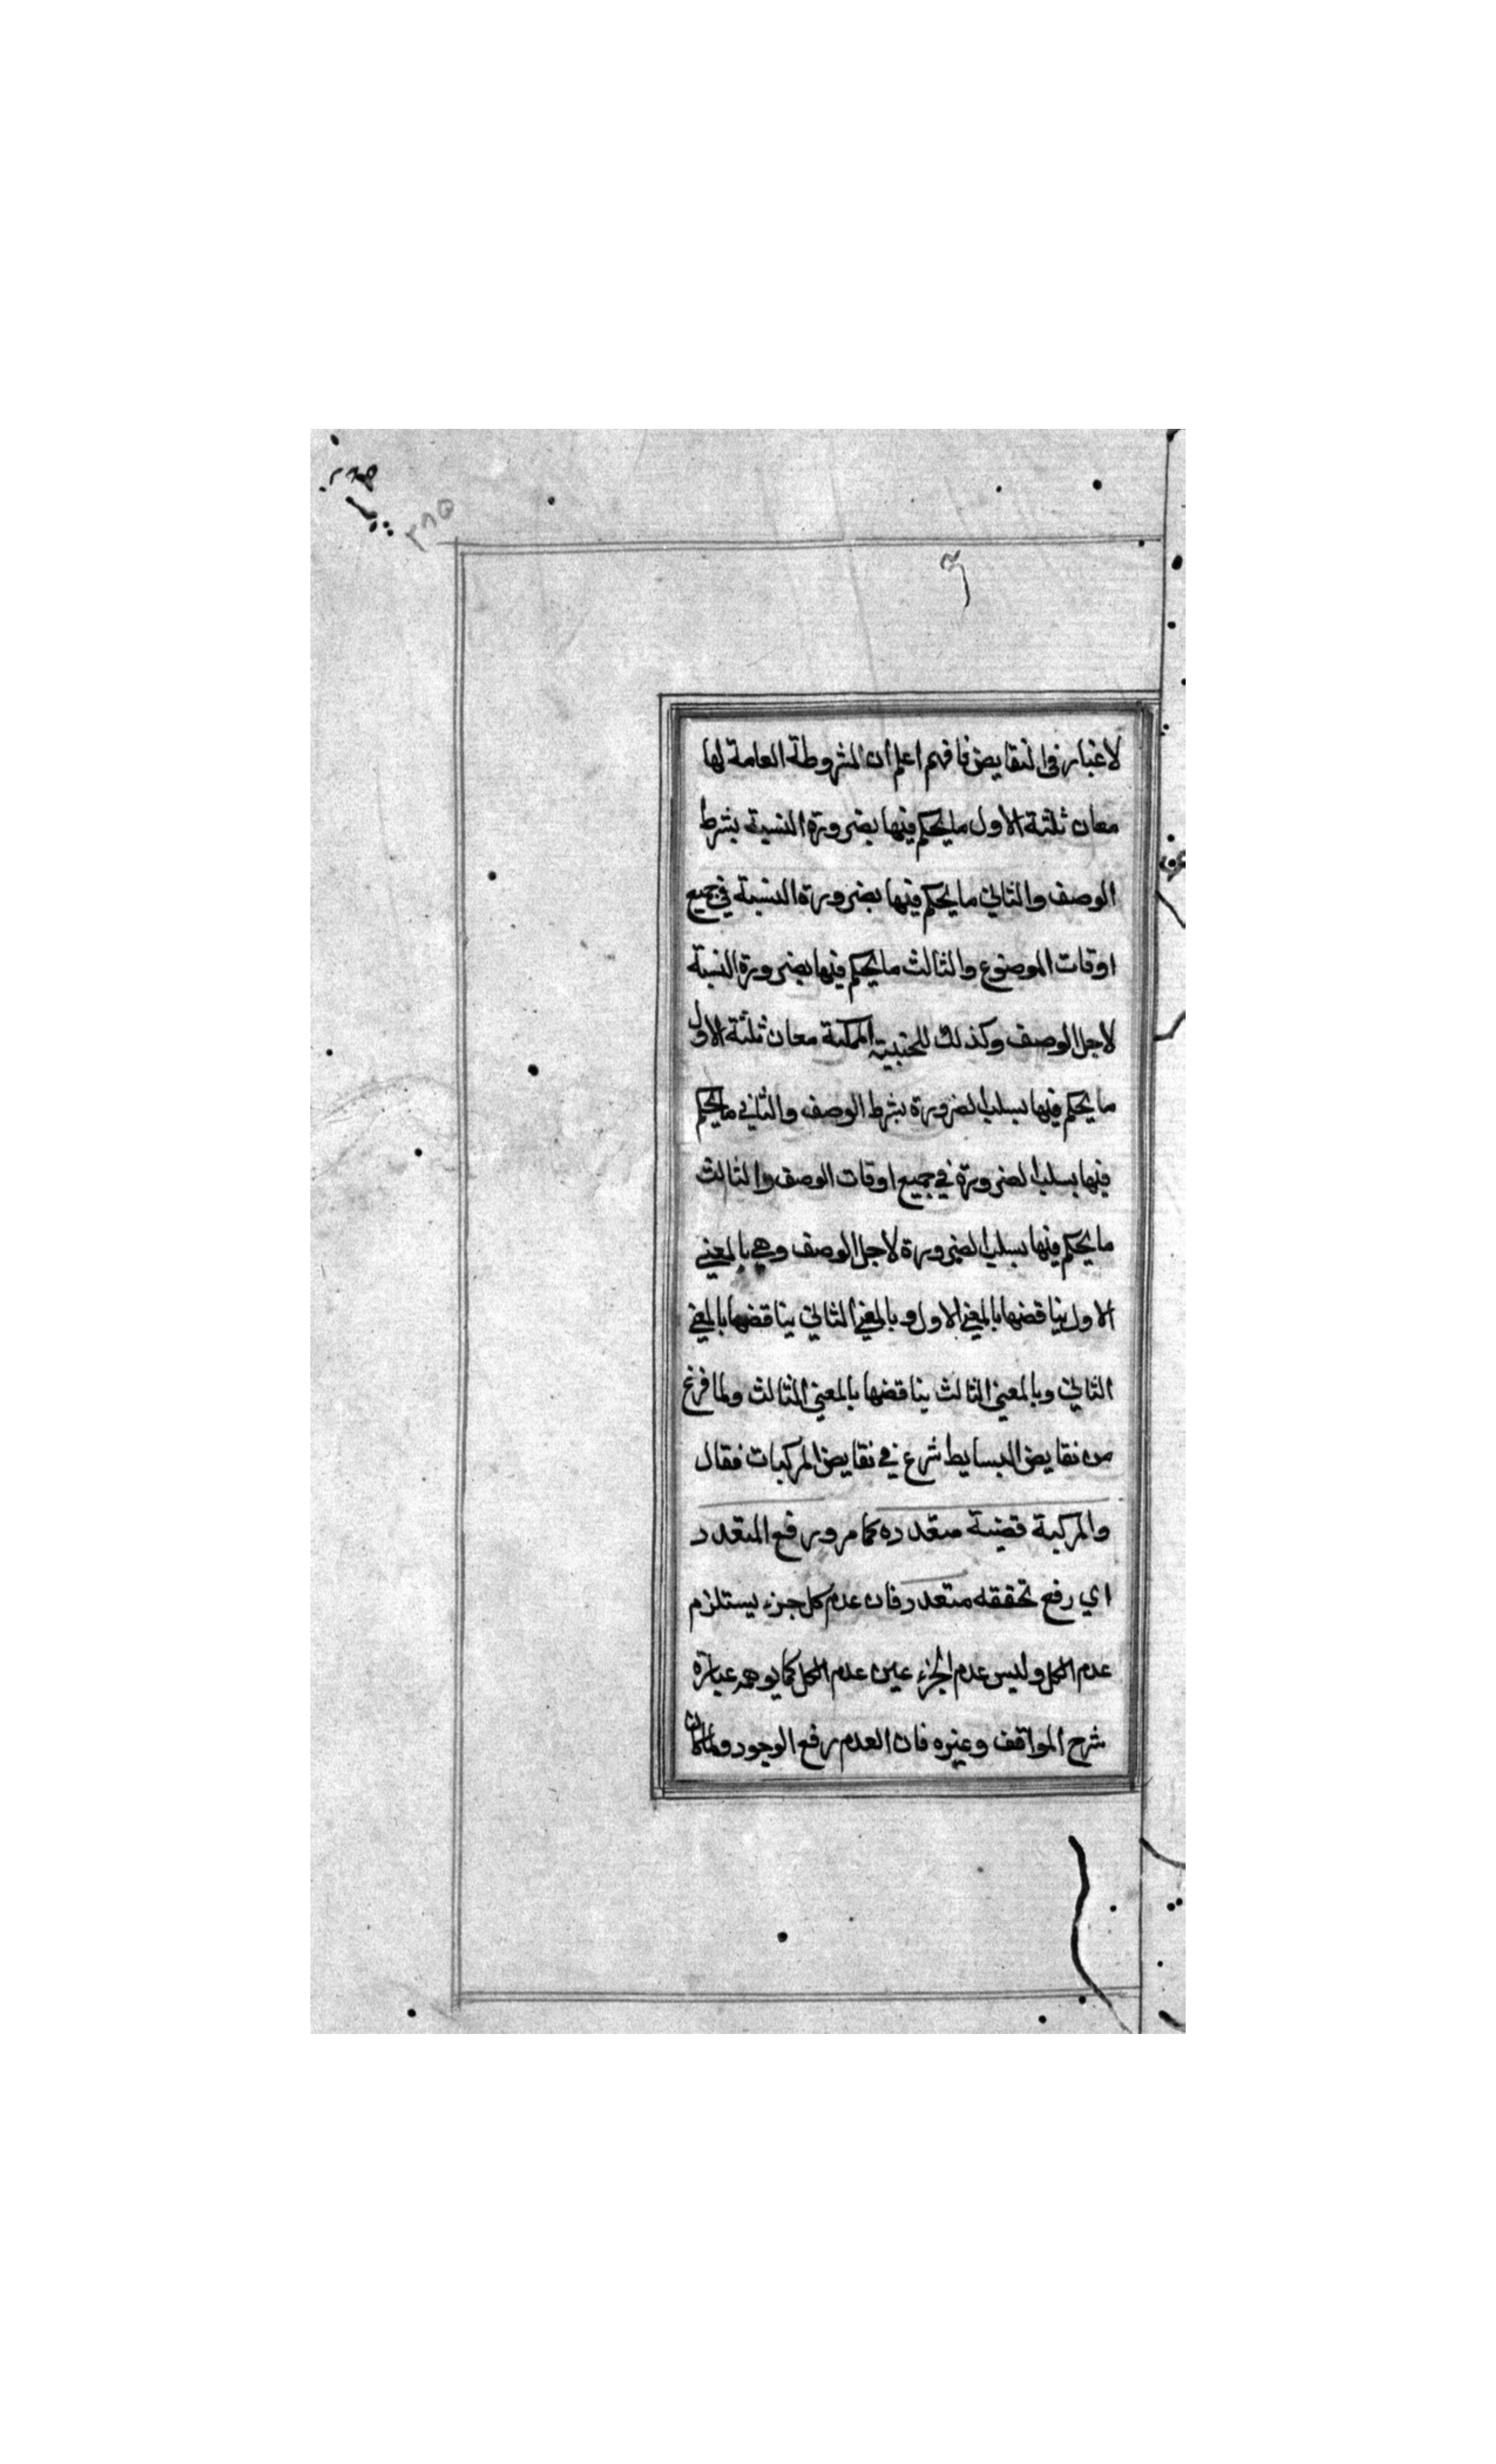 لاغبار في النقايض فافهم اعلم ان المشروطة العامة لها
معان ثلثة الاول ما يحكم فيها بضرورة النسبة بشرط
الوصف والثاني ما يحكم فيها بضرورة النسبة في جميع
اوقات الموضوع والثالث ما يحكم فيها بضرورة النسبة
لاجل الوصف وكذلك للحينية الممكنة معان ثلثة الاول
ما يحكم فيها بسلب الضرورة بشرط الوصف والثاني ما يحكم
فيها بسلب الضرورة في جميع اوقات الوصف والثالث
ما يحكم فيها بسلب الضرورة لاجل الوصف وهي بالمعني
الاول يناقضها بالمعني الاول وبالمعني الثاني يناقضها بالمعني
الثاني وبالمعني الثالث يناقضها بالمعني الثالث ولما فرغ
من نقايض البسايط شرع في نقايض المركبات فقال
والمركبة قضية متعدده كما مر ورفع المتعدد
اي رفع تحققه متعدد فان عدم كل جزء يستلزم
عدم الكل وليس عدم الجزء عين عدم الكل كما يوهمه عبارة
شرح المواقف وغيره فان العدم رفع الوجود ولما كان